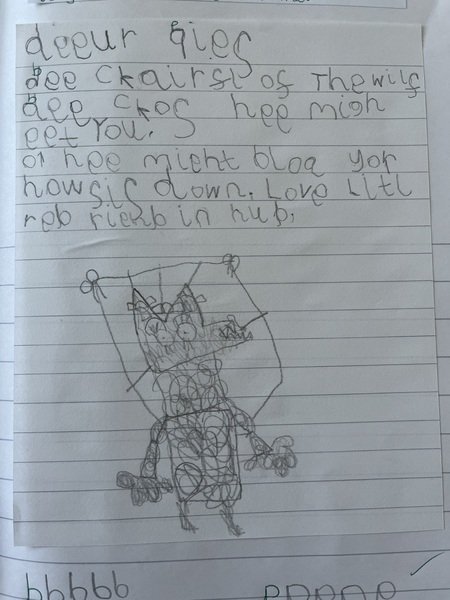 deeur Pigs
bee ckairfl of The wilf
bee ckos hee migh
eet you.
or hee mieht bloa yor
howsis down. Love Litl
reb rienb in hub.
bbbbb